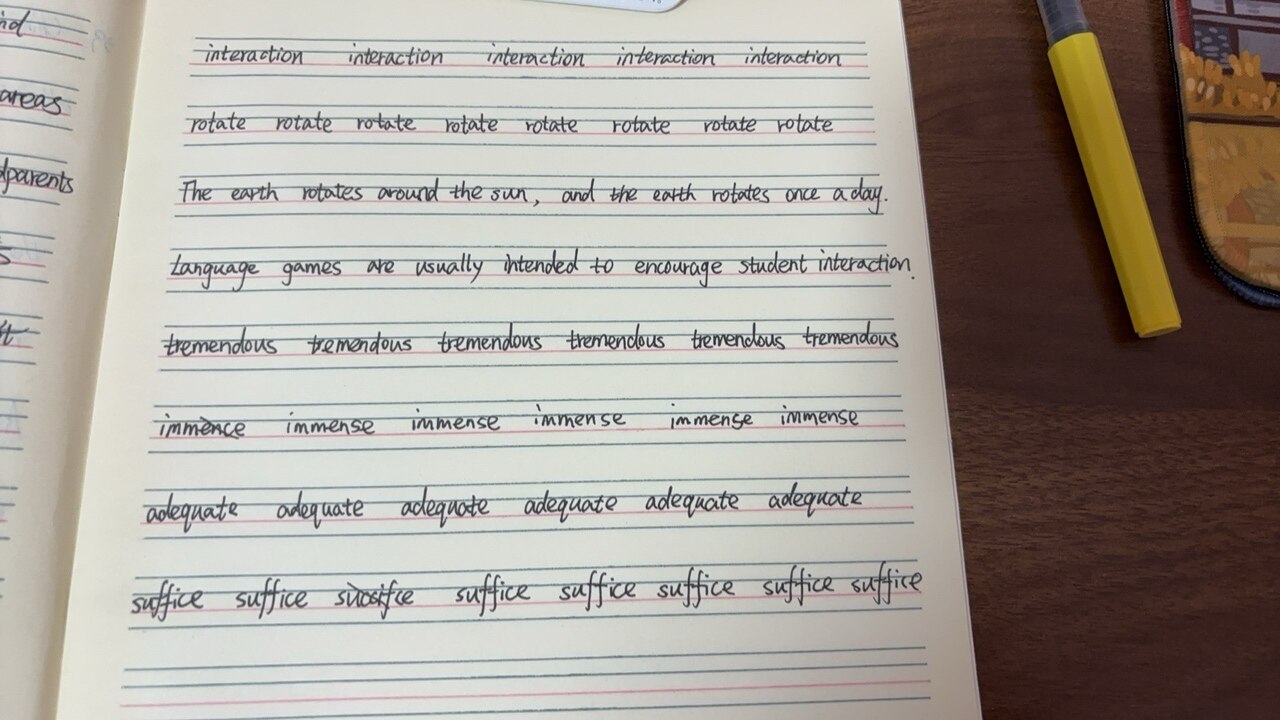 nd
areas
dparents
interaction interaction interaction interaction interaction
rotate rotate rotate rotate rotate rotate rotate rotate
The earth rotates around the sun, and the earth rotates once a day.
Language games are usually intended to encourage student interaction.
tremendous tremendous tremendous tremendous tremendous tremendous
immence immense immense immense immense immense
adequate adequate adequate adequate adequate adequate
suffice suffice suffice suffice suffice suffice suffice